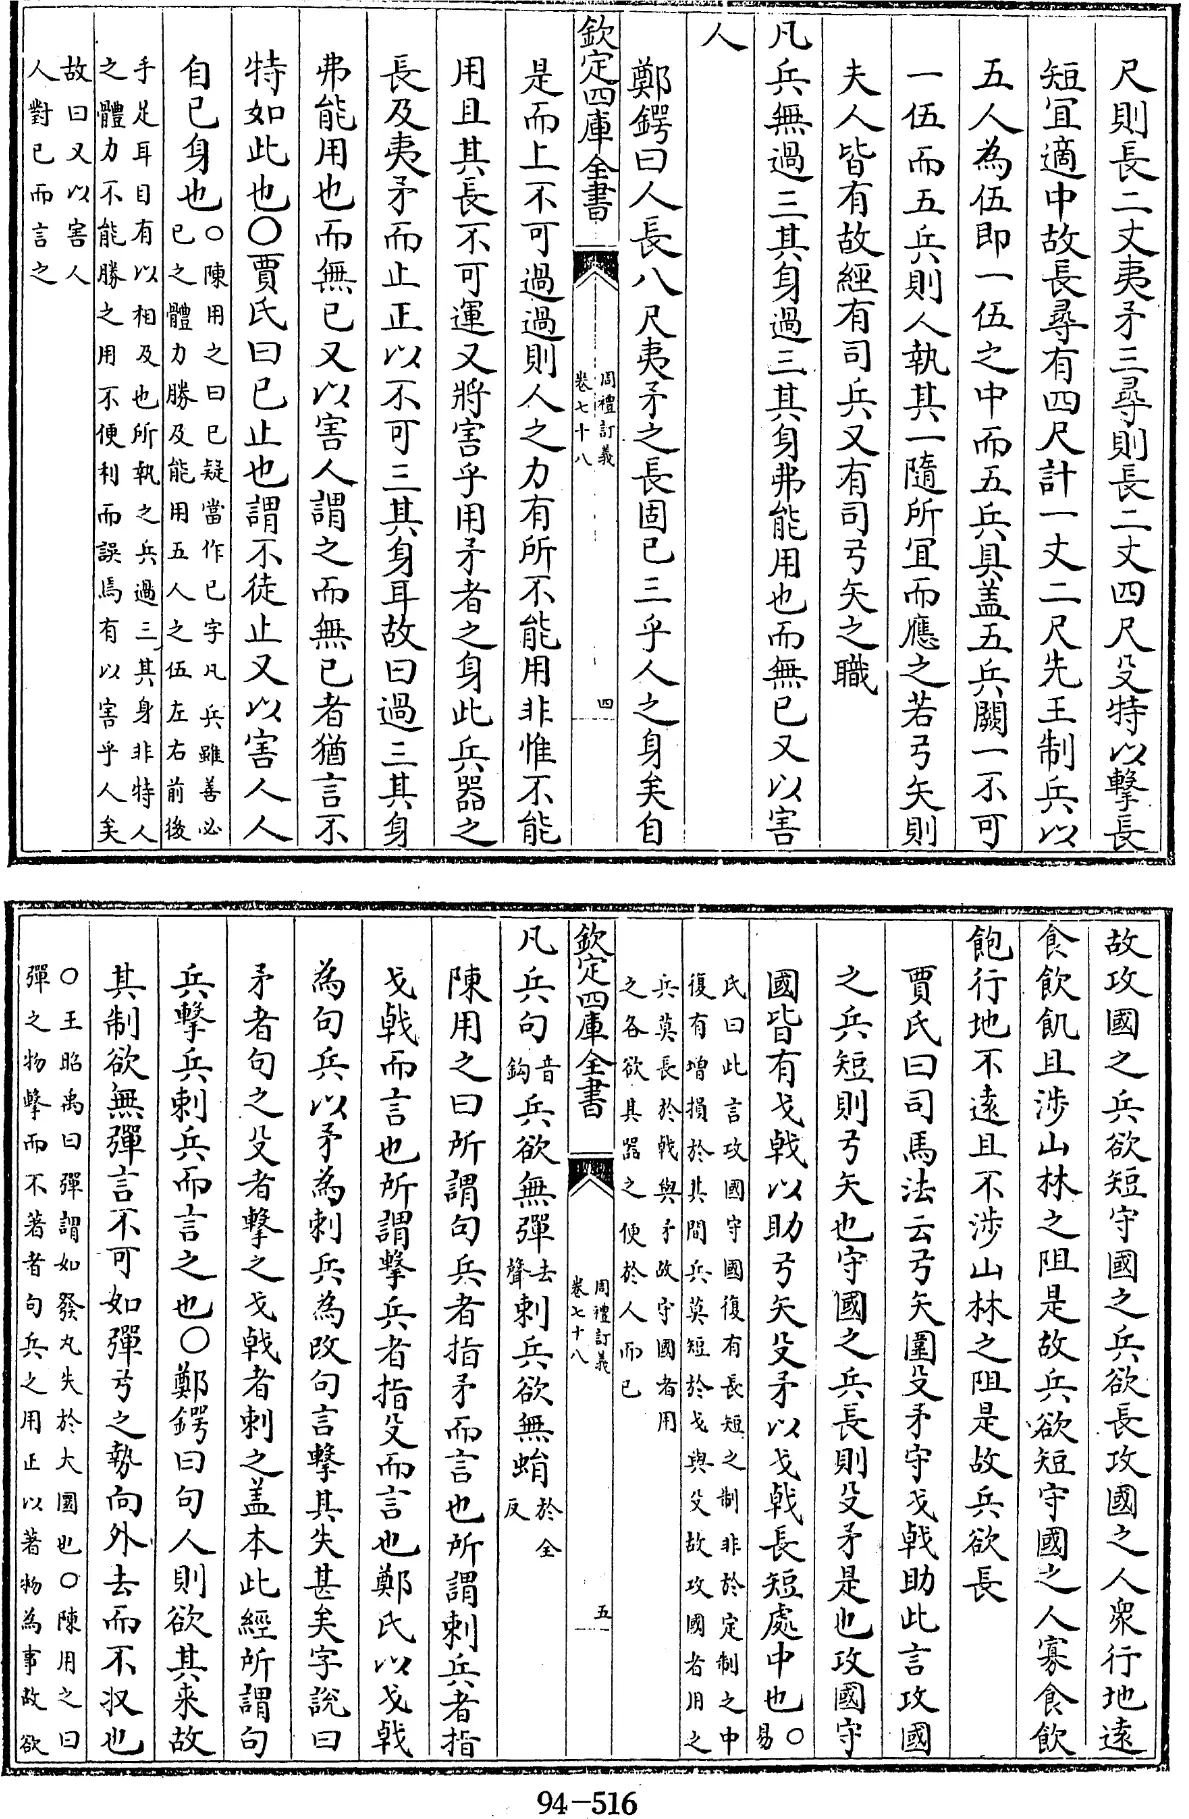 尺則長二丈夷矛三尋則長二丈四尺殳特以擊長
短宜適中故長尋有四尺計一丈二尺先王制兵以
五人為伍即一伍之中而五兵具盖五兵闕一不可
一伍而五兵則人執其一隨所宜而應之若弓矢則
夫人皆有故經有司兵又有司弓矢之職
凡兵無過三其身過三其身弗能用也而無已又以害
人
鄭鍔曰人長八尺夷矛之長固已三乎人之身矣自
欽定四庫全書
周禮訂義
卷七十八
四
是而上不可過過則人之力有所不能用非惟不能
用且其長不可運又將害乎用矛者之身此兵器之
長及夷矛而止正以不可三其身耳故曰過三其身
弗能用也而無已又以害人謂之而無已者猶言不
特如此也〇賈氏曰已止也謂不徒止又以害人人
自已身也
〇陳用之曰已疑當作已字凡兵雖善必
已之體力勝及能用五人之伍左右前後
手足耳目有以相及也所執之兵過三其身非特人
之體力不能勝之用不便利而誤焉有以害乎人矣
故曰又以害人
人對已而言之
故攻國之兵欲短守國之兵欲長攻國之人衆行地遠
食飲飢且涉山林之阻是故兵欲短守國之人寡食飲
飽行地不遠且不涉山林之阻是故兵欲長
賈氏曰司馬法云弓矢圍殳矛守戈戟助此言攻國
之兵短則弓矢也守國之兵長則殳矛是也攻國守
國皆有戈戟以助弓矢殳矛以戈戟長短處中也
〇易
氏曰此言攻國守國復有長短之制非於定制之中
復有增損於其間兵莫短於戈與殳故攻國者用之
兵莫長於戟與矛故守國者用
之各欲其器之便於人而已
欽定四庫全書
周禮訂義
卷七十八
五
凡兵句音鈎兵欲無彈去聲刺兵欲無蜎於全反
陳用之曰所謂句兵者指矛而言也所謂刺兵者指
戈戟而言也所謂擊兵者指殳而言也鄭氏以戈戟
為句兵以矛為刺兵為改句言擊其失甚矣字說曰
矛者句之殳者擊之戈戟者刺之盖本此經所謂句
兵擊兵刺兵而言之也〇鄭鍔曰句人則欲其来故
其制欲無彈言不可如彈弓之勢向外去而不収也
〇王昭禹曰彈謂如發丸失於大圜也〇陳用之曰
彈之物擊而不著者句兵之用正以著物為事故欲
94-516